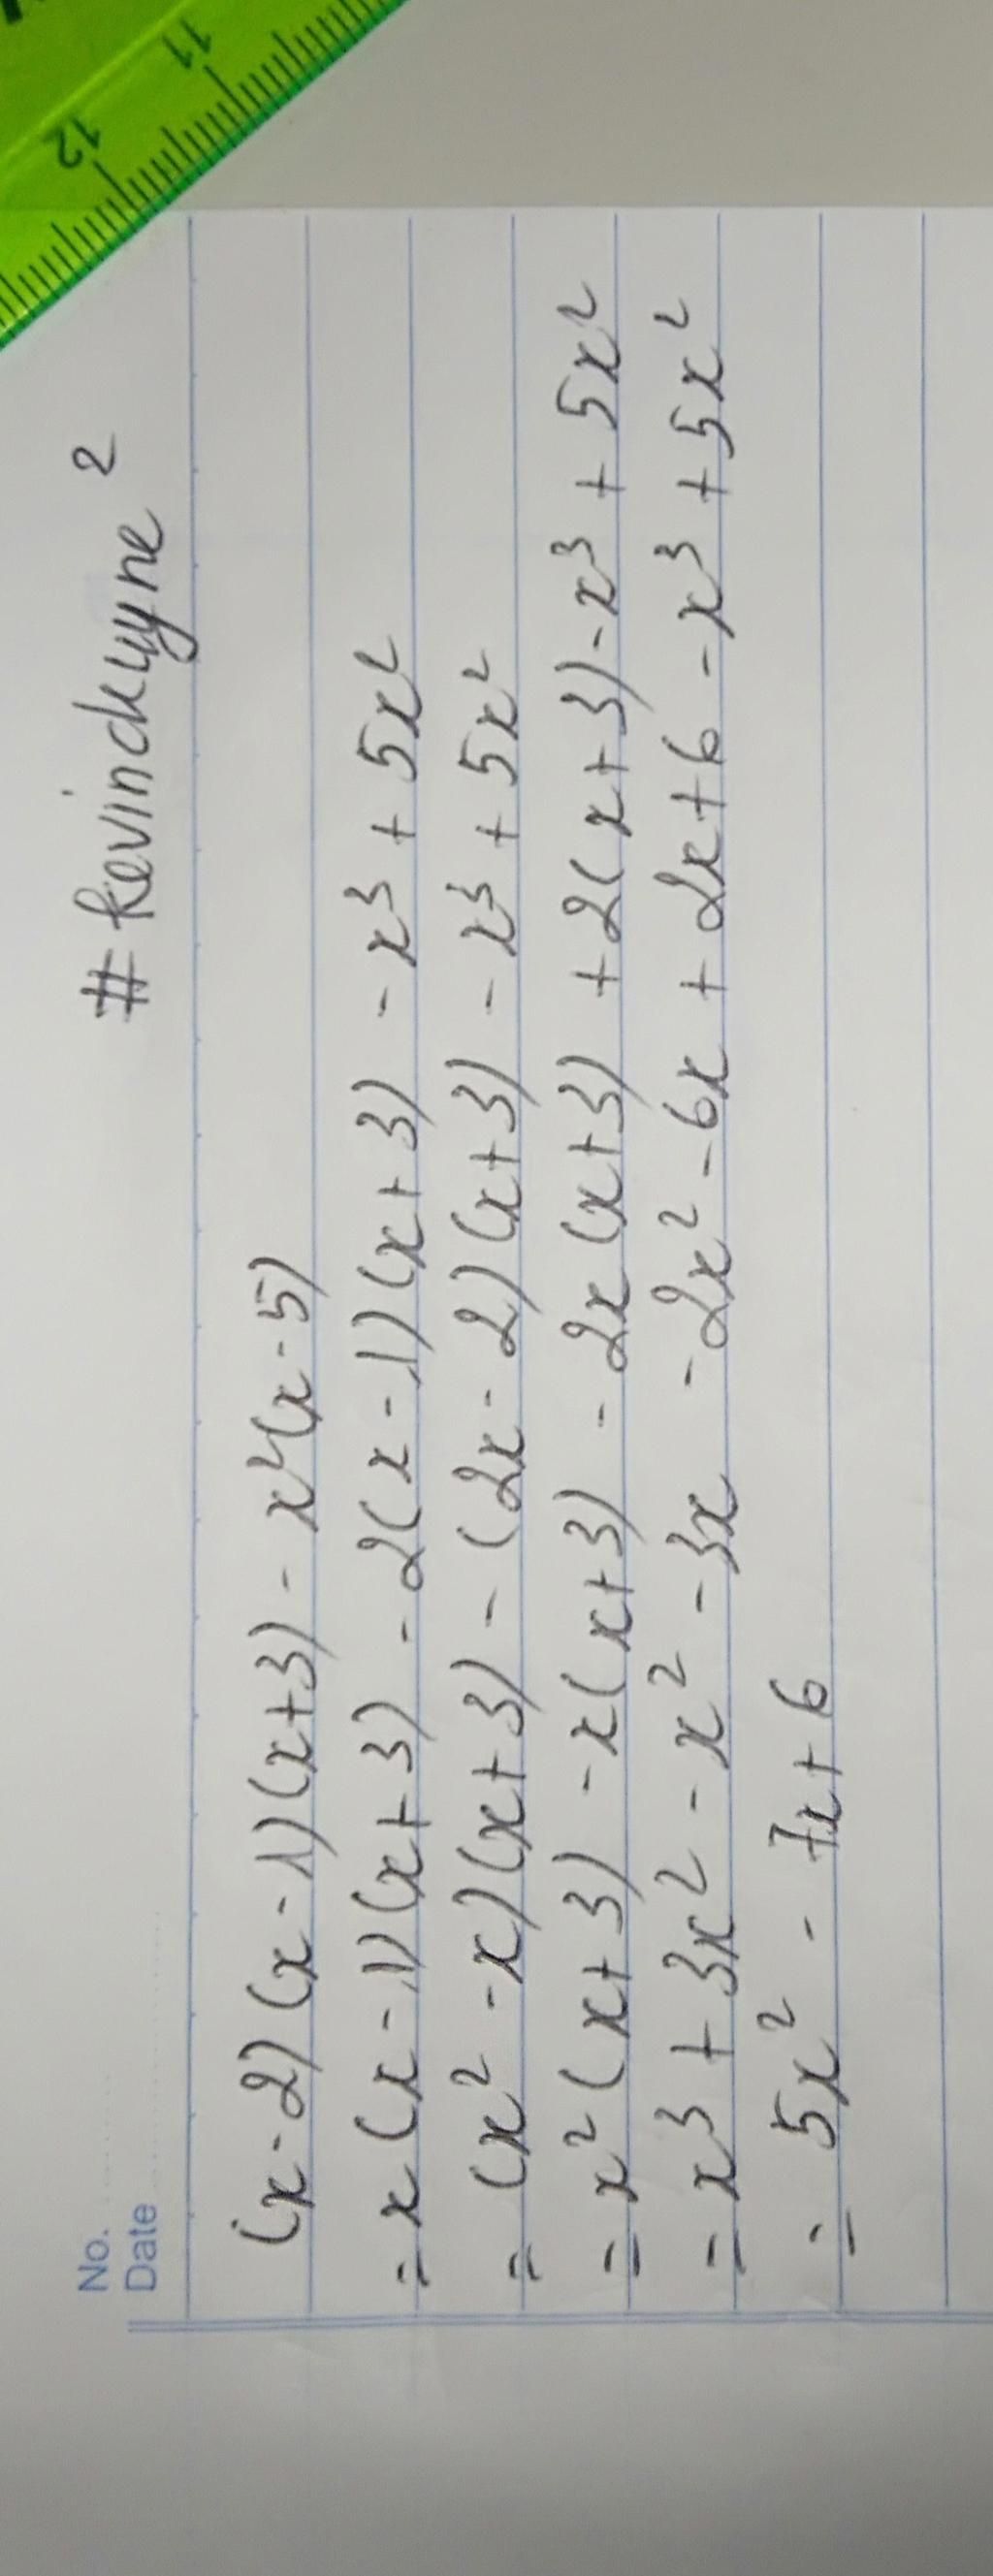 12 11
# kevinchuyne²
No.
Date
(x-2)(x-1)(x+3) - x²(x-5)
= x(x-1)(x+3) - 2(x-1)(x+3) - x³ + 5x²
= (x² - x)(x+3) - (2x-2)(x+3) - x³ + 5x²
= x²(x+3) - x(x+3) - 2x(x+3) + 2(x+3) - x³ + 5x²
= x³ + 3x² - x² - 3x - 2x² - 6x + 2x + 6 - x³ + 5x²
= 5x² - 7x + 6